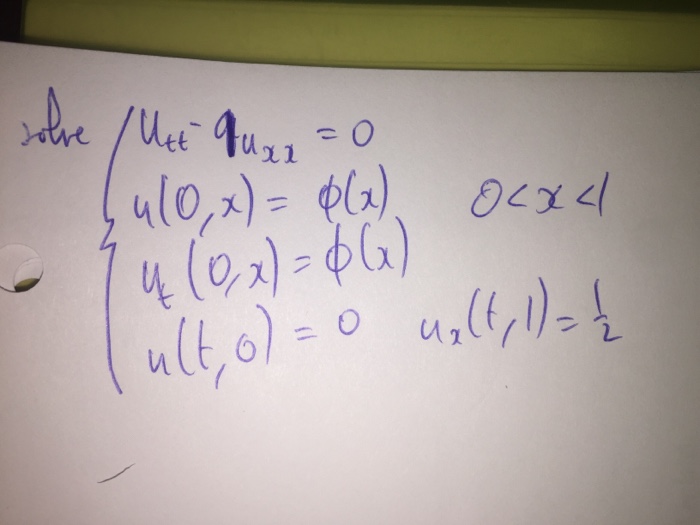 solve u_tt - 9u_xx = 0
u(0,x) = ϕ(x) 0<x<1
u_t(0,x) = ϕ(x)
u(t,0) = 0 u_x(t,1) = 1/2